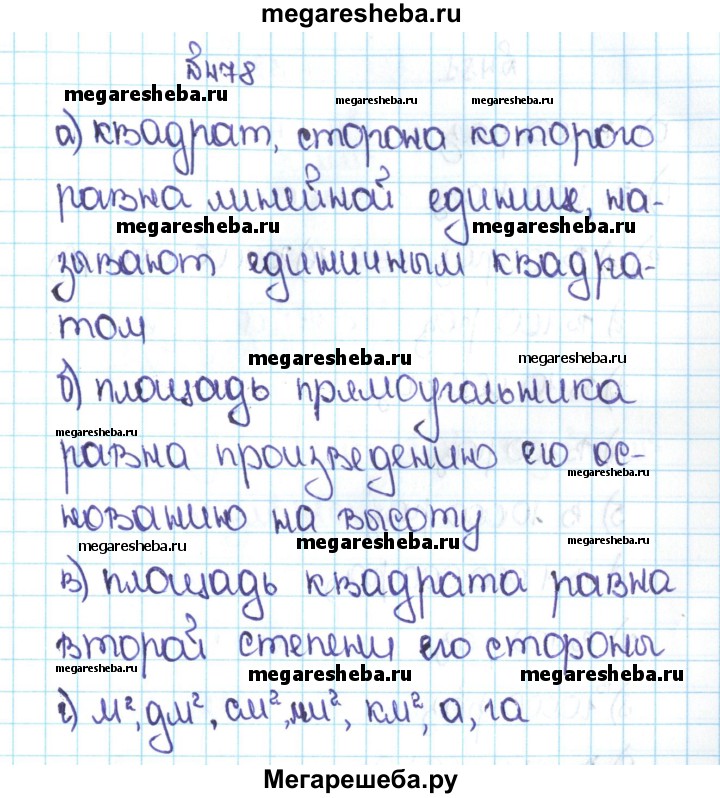 megaresheba.ru
№478
megaresheba.ru megaresheba.ru
а) квадрат, сторона которого
равна линейной единице, на-
megaresheba.ru megaresheba.ru
зывают единичным квадра-
том
megaresheba.ru megaresheba.ru
б) площадь прямоугольника
megaresheba.ru
равна произведению его ос-
megaresheba.ru
нованию на высоту
megaresheba.ru megaresheba.ru megaresheba.ru
в) площадь квадрата равна
второй степени его стороны
megaresheba.ru megaresheba.ru megaresheba.ru
г) м², дм², см², мм², км², а, га
Мегарешеба.ру